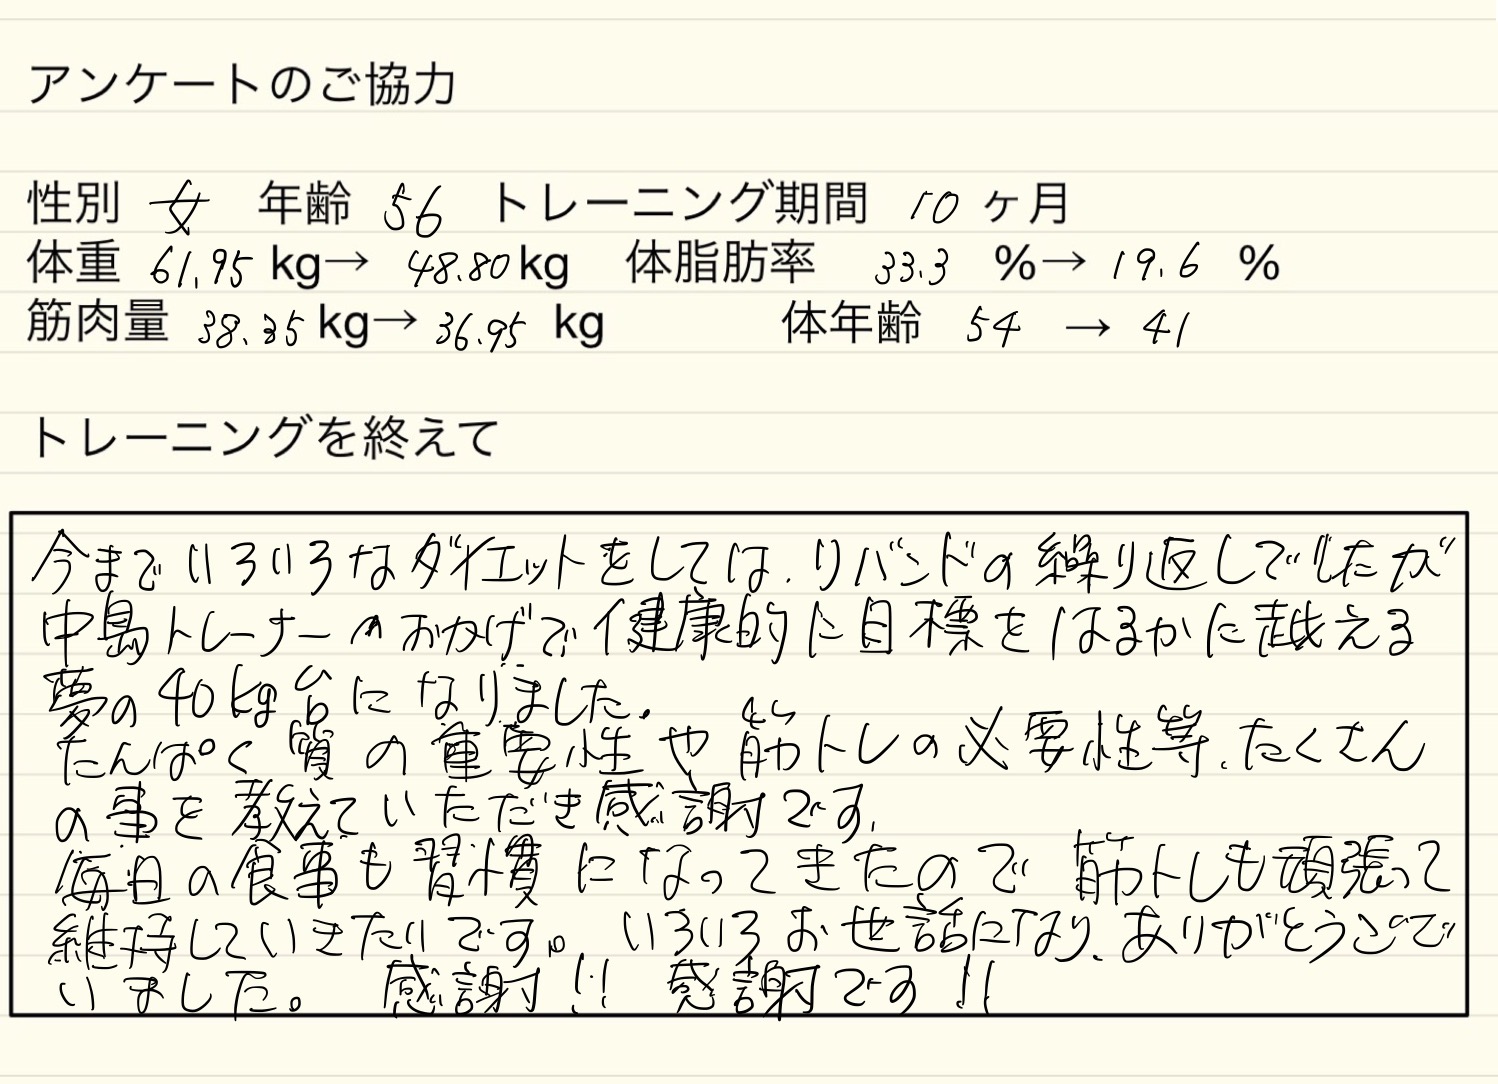 アンケートのご協力
性別 女 年齢 56 トレーニング期間 10 ヶ月
体重 61.95 kg→ 48.80 kg 体脂肪率 33.3 %→ 19.6 %
筋肉量 38.35 kg→ 36.95 kg 体年齢 54 → 41
トレーニングを終えて
今までいろいろなダイエットをしては、リバンドの繰り返しでしたが
中島トレーナーのおかげで健康的に目標をはるかに越える
夢の40kg台になりました。
たんぱく質の重要性や筋トレの必要性等、たくさん
の事を教えていただき感謝です。
毎日の食事も習慣になってきたので筋トレも頑張って
維持していきたいです。いろいろお世話になり、ありがとうごで
いました。 感謝!! 感謝です!!